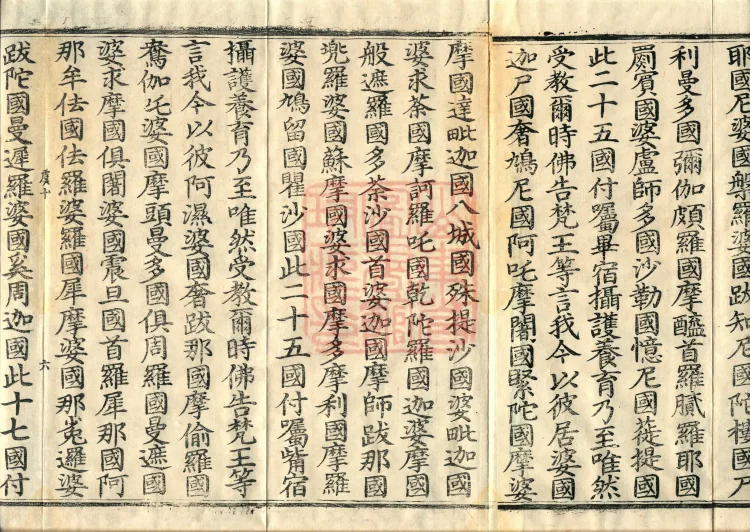 耶國尼婆國槃羅婆國跋知尼國陀樓國尸
利曼多國彌伽頗羅國摩醯首羅膩羅耶國
罽賓國婆盧師多國沙勒國憶尼國蓰提國
此二十五國付囑畢宿攝護養育乃至唯然
受教爾時佛告梵王等言我今以彼居婆國
迦尸國奢鳩尼國阿吒摩闍國緊陀國摩婆
摩國達毗迦國八城國殊提沙國婆毗迦國
婆求荼國摩訶羅吒國乾陀羅國迦婆摩國
般遮羅國多荼沙國首婆迦國摩師跋那國
兠羅婆國蘇摩國婆求國摩多摩利國摩羅
婆國鳩留國瞿沙國此二十五國付囑觜宿
攝護養育乃至唯然受教爾時佛告梵王等
言我今以彼阿濕婆國奢跋那國摩偷羅國
鴦伽吒婆國摩頭曼多國俱周羅國曼遮國
婆求摩國俱闍婆國震旦國首羅犀那國阿
那牟佉國佉羅婆羅國犀摩婆國那嵬邏婆
虞十
六
跋陀國曼遲羅婆國奚周迦國此十七國付